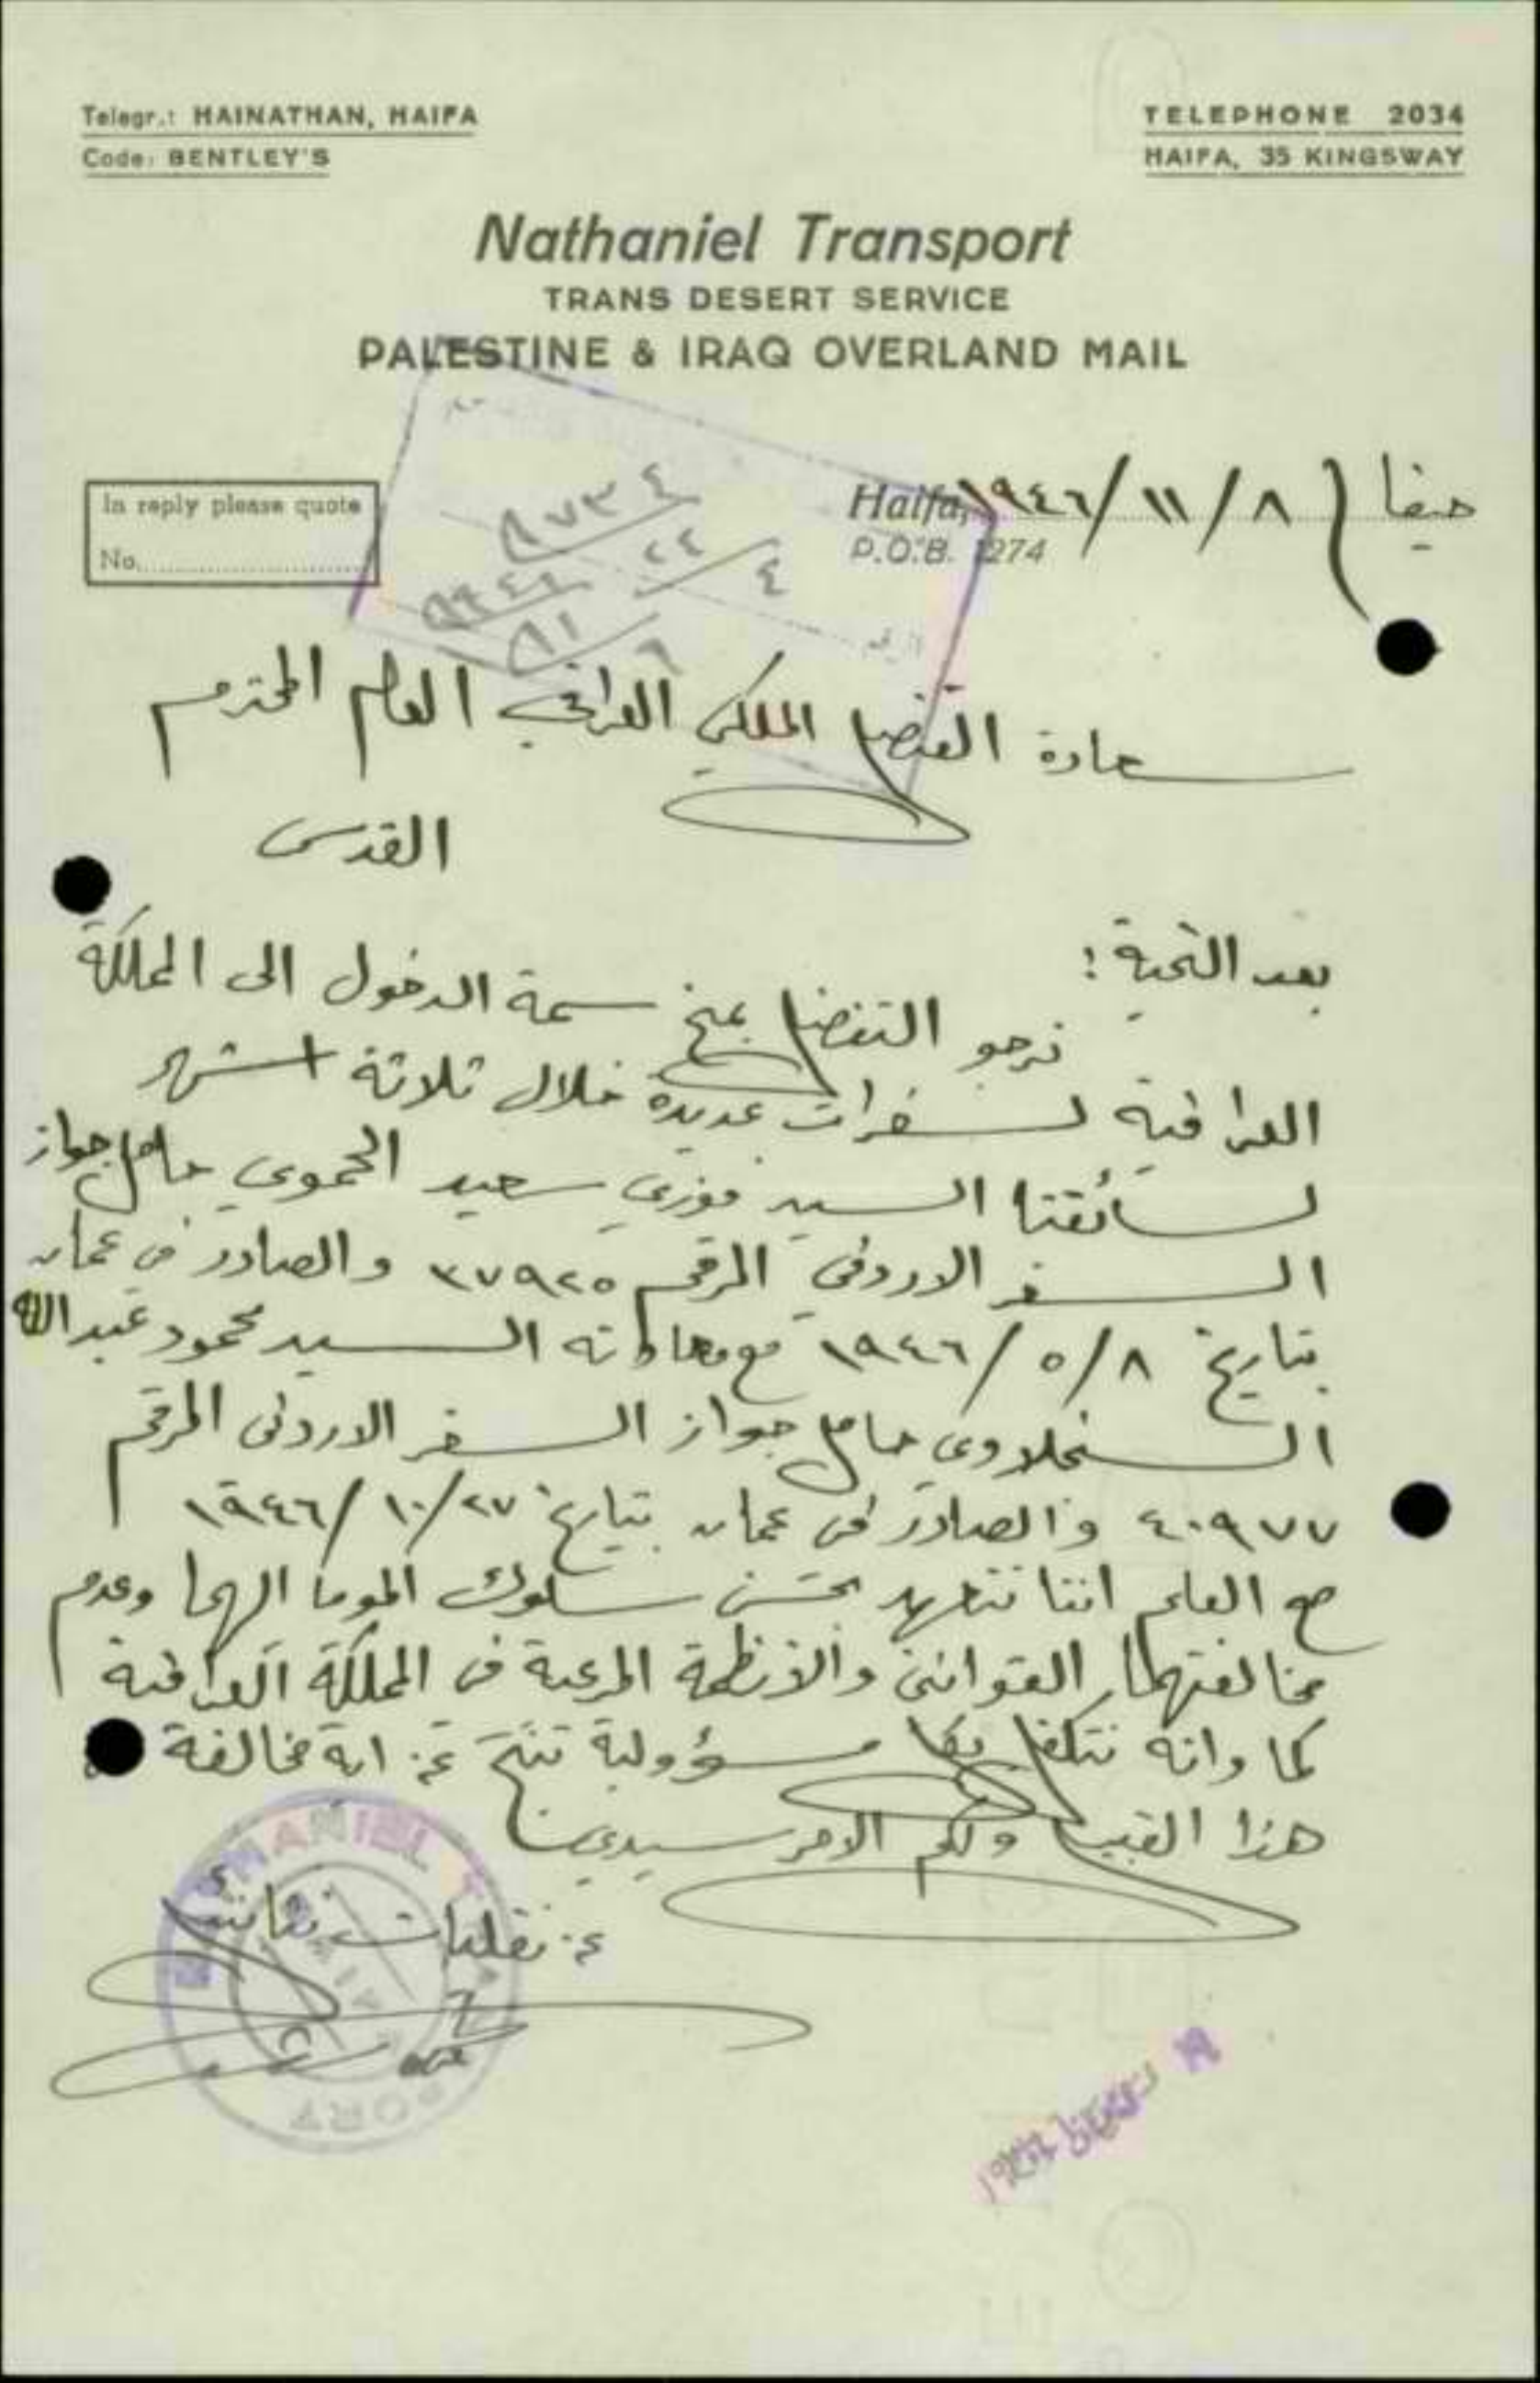 Telegr.: HAINATHAN, HAIFA
Code: BENTLEY'S
TELEPHONE 2034
HAIFA, 35 KINGSWAY
Nathaniel Transport
TRANS DESERT SERVICE
PALESTINE & IRAQ OVERLAND MAIL
In reply please quote
No.
Haifa,
P.O.B. 1274
حيفا ١٩٤٦/١١/٨
٨٧٣٤
٢٤
٤
سعادة القنصل الملكي العراقي العام المحترم
القدس
بعد التحية :
نرجو التفضل بمنح سمة الدخول الى المملكة
العراقية لسفرات عديدة خلال ثلاثة اشهر
لسائقنا السيد فوزي سعيد الحموي حامل جواز
السفر الاردني المرقم ٣٧٩٢٥ والصادر في عمان
بتاريخ ١٩٤٦/٥/٨ مع معاونه السيد محمود عبدالله
السنحلاوي حامل جواز السفر الاردني المرقم
٤٠٩٧٧ والصادر في عمان بتاريخ ١٩٤٦/١٠/٢٧
مع العلم اننا نتعهد بحسن سلوك الموما اليهما وعدم
مخالفتهما القوانين والانظمة المرعية في المملكة العراقية
كما وانه نتكفل بكل مسؤولية تنتج عن اية مخالفة
هذا القبيل ولكم الامر سيدي
عن نقليات نثانيل
NATHANIEL
PORT